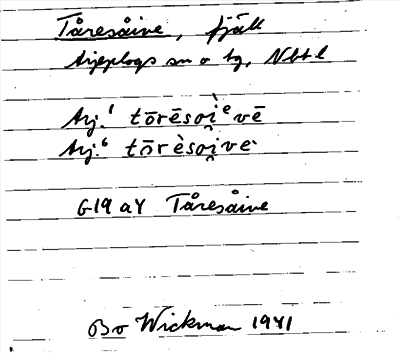 Tåresåive, fjäll
Arjeplogs sn o tg, Nbtl
Arj.¹ tōrēsoi̯ᵉvē
Arj.⁶ tōrèsoi̯vè
G19 aY Tåresåive
Bo Wickman 1941